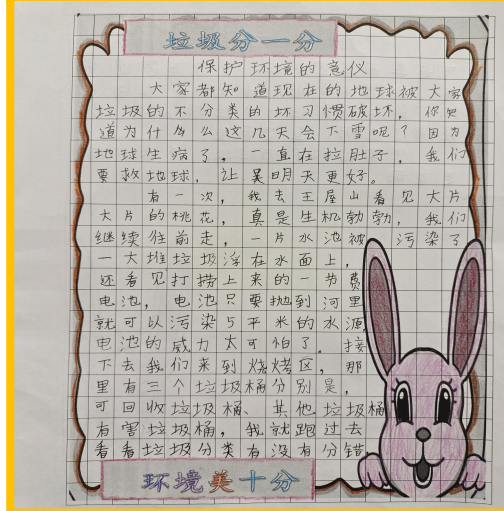 垃圾分一分
保护环境的意仪
大家都知道现在的地球被大家
垃圾的不分类的坏习惯破坏，你知
道为什么么这几天会下雪呢？因为
地球生病了，一直在拉肚子，我们
要救地球，让明天更好。
有一次，我去王屋山看见大片
大片的桃花，真是生机勃勃，我们
继续往前走，一片水池被污染了
一大堆垃圾浮在水面上，
还看见打捞上来的一节费
电池，电池只要抛到河里
就可以污染5平米的水源，
电池的威力太可怕了。接
下去我们来到烧烤区，那
里有三个垃圾桶分别是，
可回收垃圾桶、其他垃圾桶
有害垃圾桶，我就跑过去
看看垃圾分类有没有分错
环境美十分